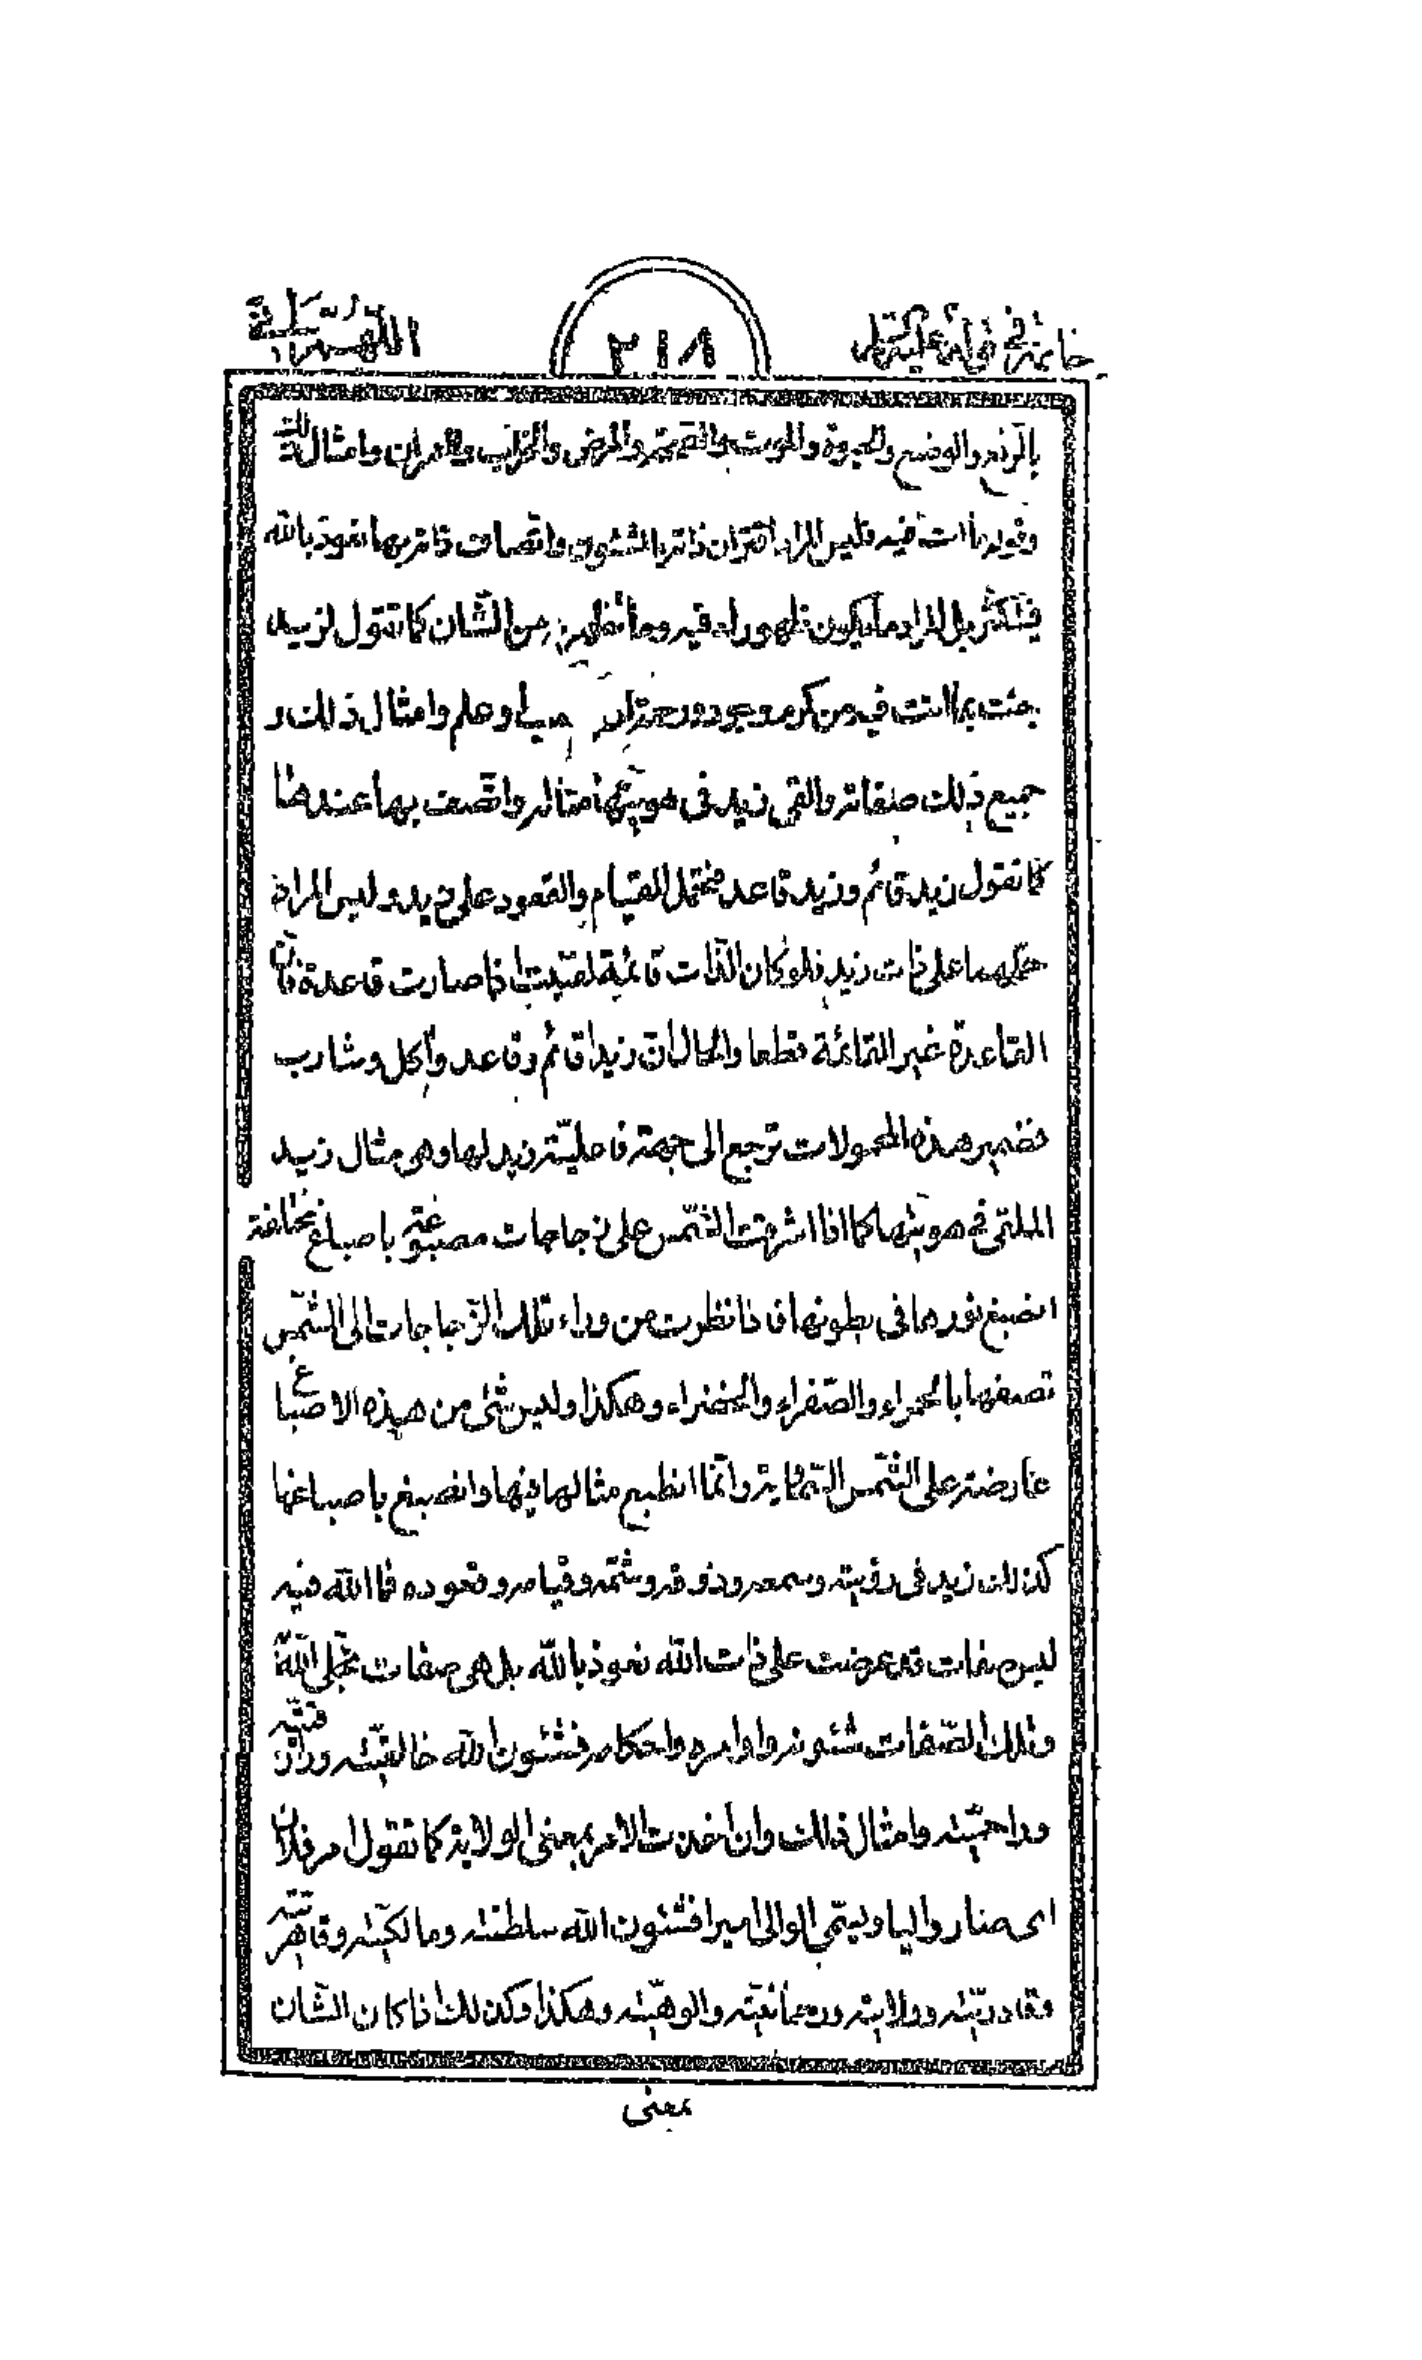 خاتمة في قوله عليه السلام
٢١٨
اللهم انى
بالرفع والوضع والحيوة والموت والصحة والمرض والخراب والعمران وامثال ذلك
وقوله ما انت فيه فليس المراد اقتران ذاته بالشئون واتصاف ذاته بها نعوذ بالله
فيتكثر بل المراد ما يكون ظهوراه فيه وما تظهر به من الشان كما تقول لزيد
جئت بما انت فيه من كرم وجود ورحمة وعلم وامثال ذلك و
جميع ذلك صفاته والقى زيد فى هويتها مثاله واتصف بها عندها
كما تقول زيد قائم وزيد قاعد فتحمل القيام والقعود على زيد وليس المراد
حملهما على ذات زيد فلو كان الذات قائمة لفنيت اذا صارت قاعدة فان
القاعدة غير القائمة قطعا والحال ان زيدا قائم وقاعد وآكل وشارب
فضمير هذه المحمولات ترجع الى جهة فاعلية زيد لها وهى مثال زيد
الملقى فى هويتها كما اذا اشرقت الشمس على زجاجات مصبوغة باصباغ مختلفة
انصبغ نورها فى بطونها فاذا نظرت من وراء تلك الزجاجات الى الشمس
تصفها بالحمراء والصفراء والخضراء وهكذا وليس شئ من هذه الاصباغ
عارضة على الشمس السمائية وانما انطبع مثالها فيها وانصبغ باصباغها
كذلك زيد فى رؤيته وسمعه وذوقه وشمه وقيامه وقعوده فما الله فيه
ليس صفات قد عرضت على ذات الله نعوذ بالله بل هى صفات تجلى الله
وتلك الصفات شئونه واوامره واحكامه فشئون الله خالقيته ورازقيته
وراحميته وامثال ذلك وان اخذت الامر بمعنى الولاية كما تقول امر فلان
اى صار واليا ويسمى الوالى اميرا فشئون الله سلطنته ومالكيته وقاهريته
وقادريته وولايته ورحمانيته والوهيته وهكذا وكذلك اذا كان الشان
بمعنى